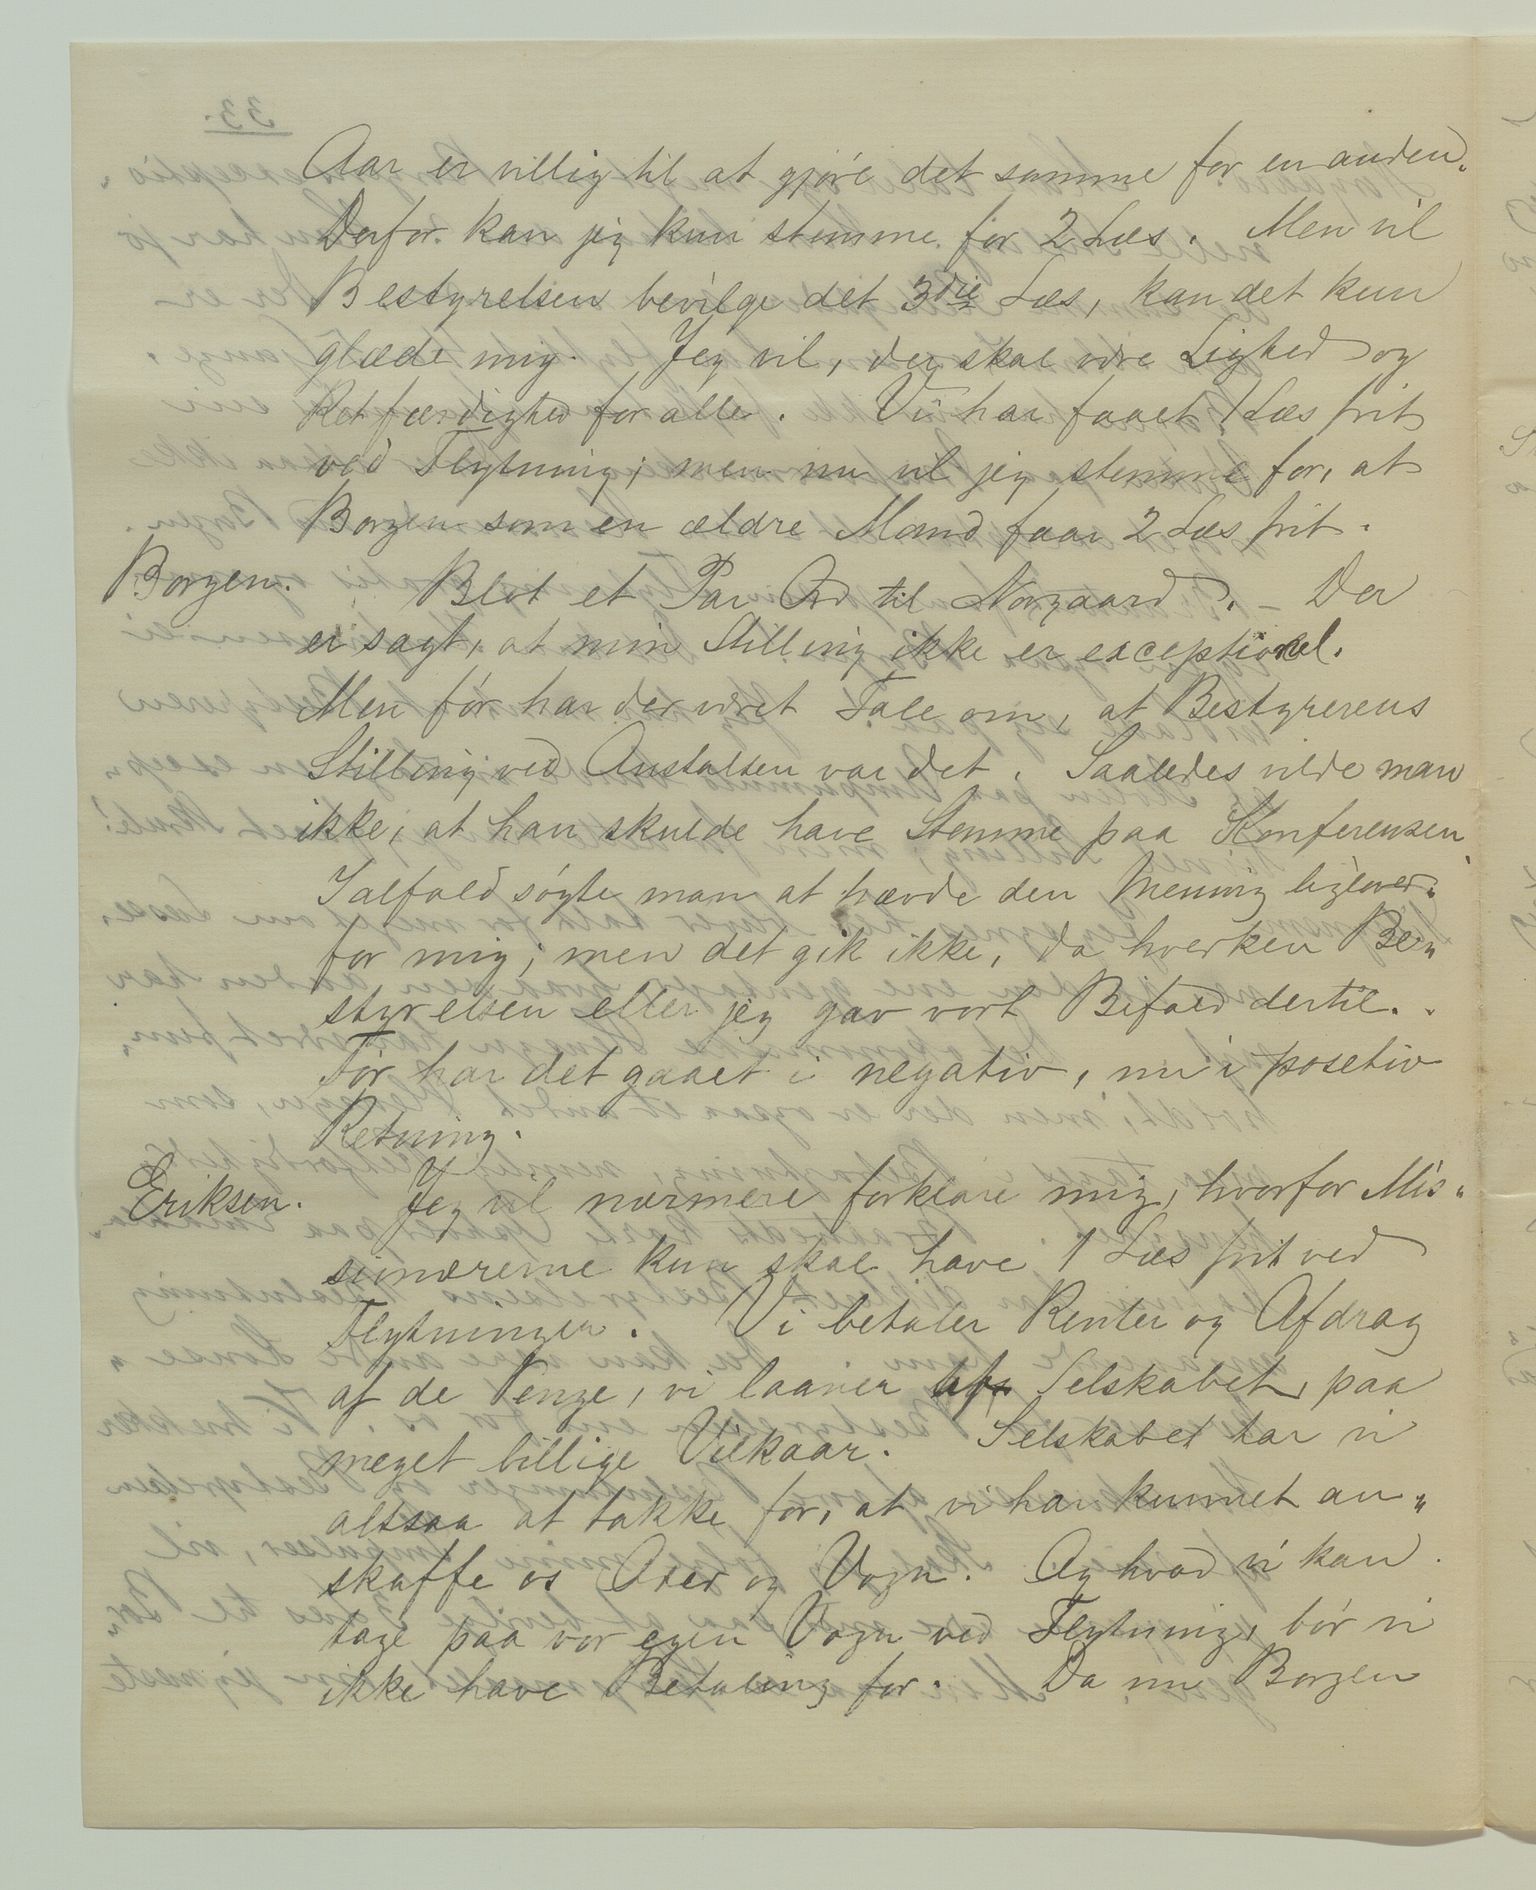 Aar er villig til at gjøre det samme for en anden.
Derfor kan jeg kun stemme for 2 Læs. Men vil
Bestyrelsen bevilge det 3die Læs, kan det kun
glæde mig. Jeg vil, der skal være Lighed og
Retfærdighed for alle. Vi har faaet 1 Læs frit
ved Flytning; men nu vil jeg stemme for, at
Borgen som en ældre Mand faar 2 Læs frit.
Borgen. Blot et Par Ord til Norgaard. Der
er sagt, at min Stilling ikke er exceptionel.
Men før har der været Tale om, at Bestyrerens
Stilling ved Anstalten var det. Saaledes vilde man
ikke, at han skulde have Stemme paa Konferensen.
Ialfald søgte man at hævde den Mening ligeover-
for mig; men det gik ikke, da hverken Be-
styrelsen eller jeg gav vort Bifald dertil.
Før har det gaaet i negativ, nu i posetiv
Retning.
Eriksen. Jeg vil nærmere forklare mig, hvorfor Mis-
sionærerne kun skal have 1 Læs frit ved
Flytninger. Vi betaler Renter og Afdrag
af de Penge, vi laaner af Selskabet, paa
meget billige Vilkaar. Selskabet har vi
altsaa at takke for, at vi har kunnet an-
skaffe os Oxer og Vogn. Og hvad vi kan
tage paa vor egen Vogn ved Flytning, bør vi
ikke have Betaling for. Da nu Borgen